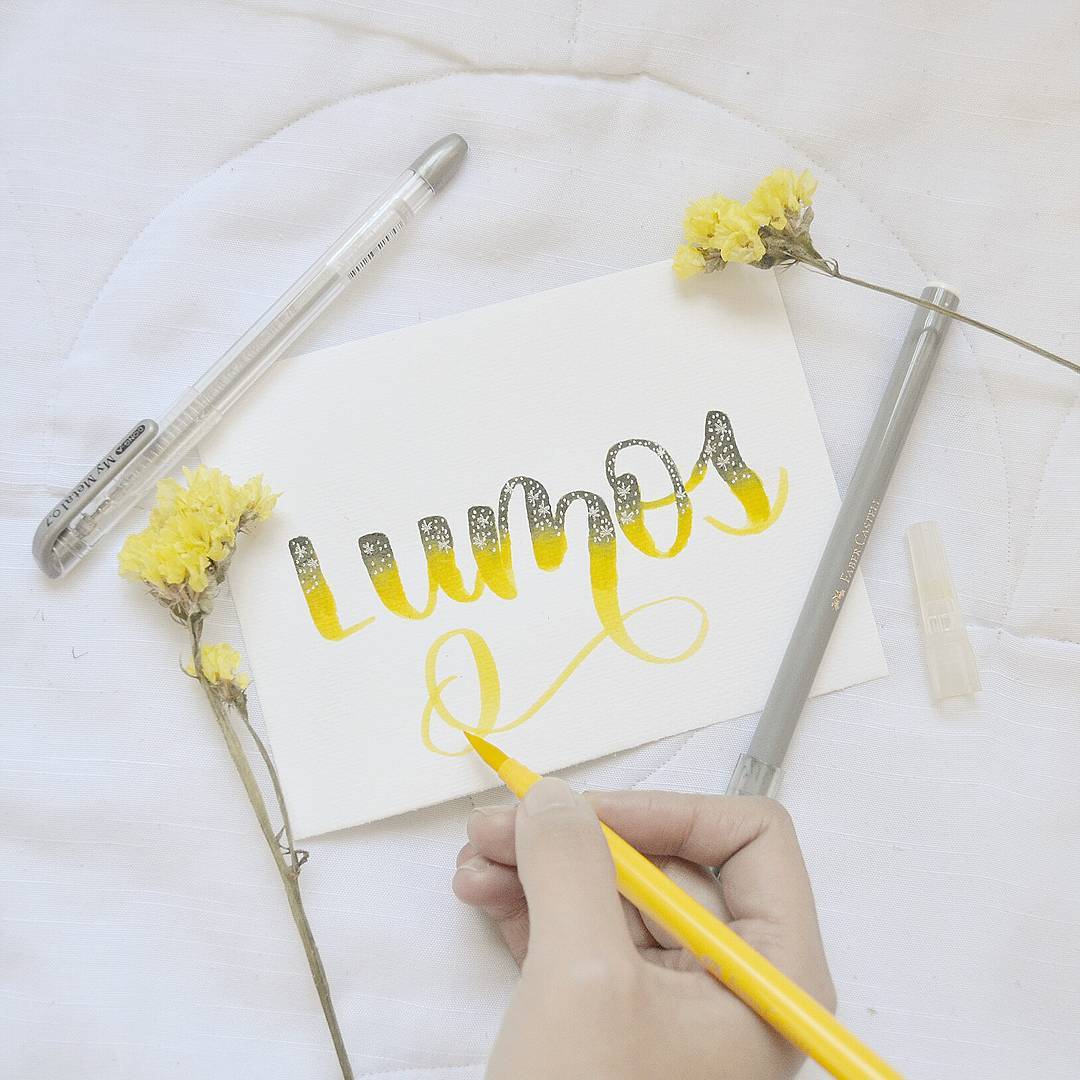 Lumos
My Metal 0.7
FABER CASTELL